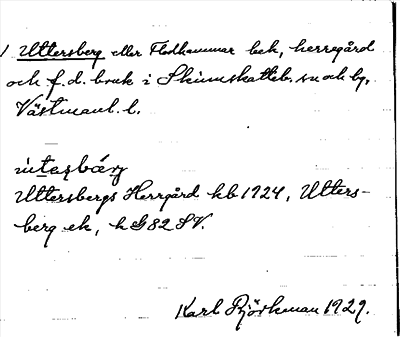 / Uttersberg eller Flodhammar bek, herregård
och f.d. bruk i Skinnskatteb. sn och by,
Västmanl. l.
ùtəʂbárj
Uttersbergs Herrgård kb 1924, Utters-
berg ek, h G82 SV.
Karl Björkman 1929.